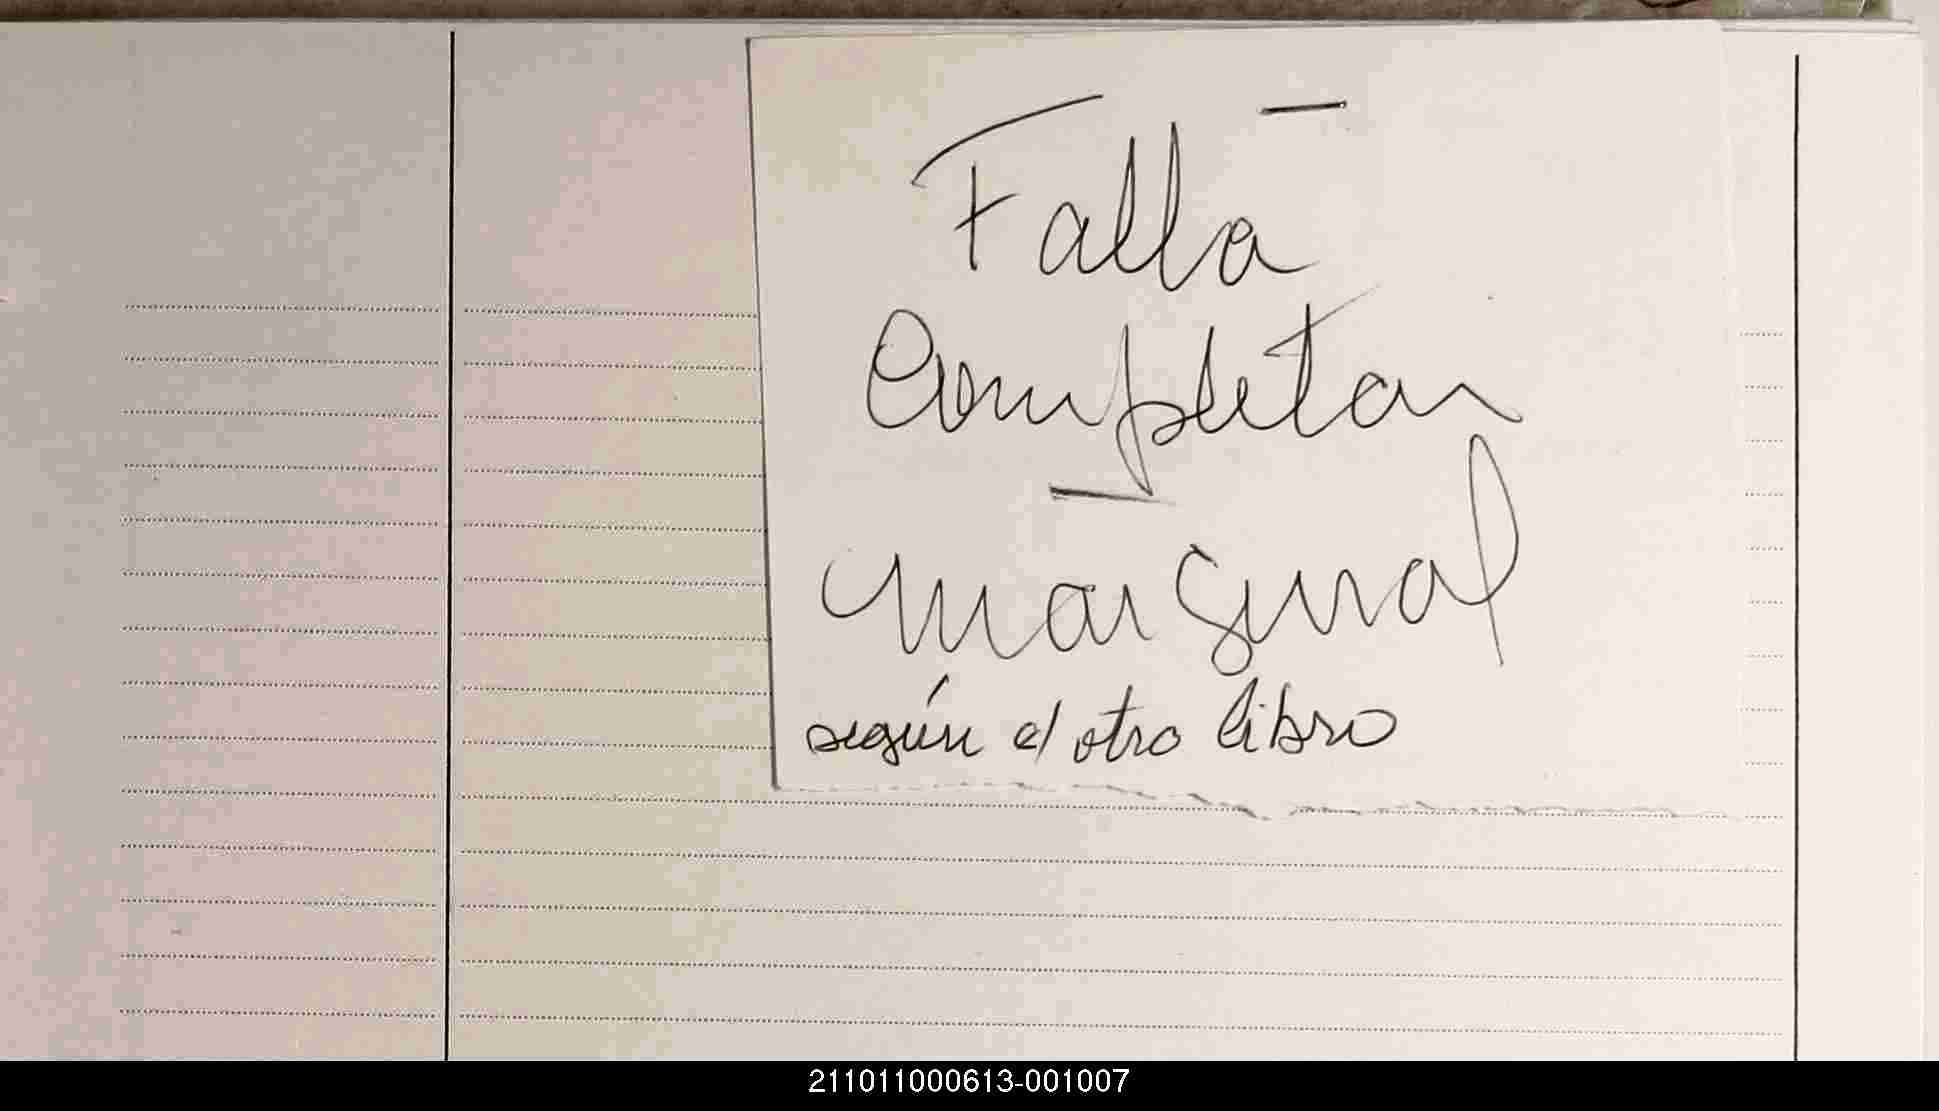 Falta
Completar
marginal
según el otro libro
211011000613-001007